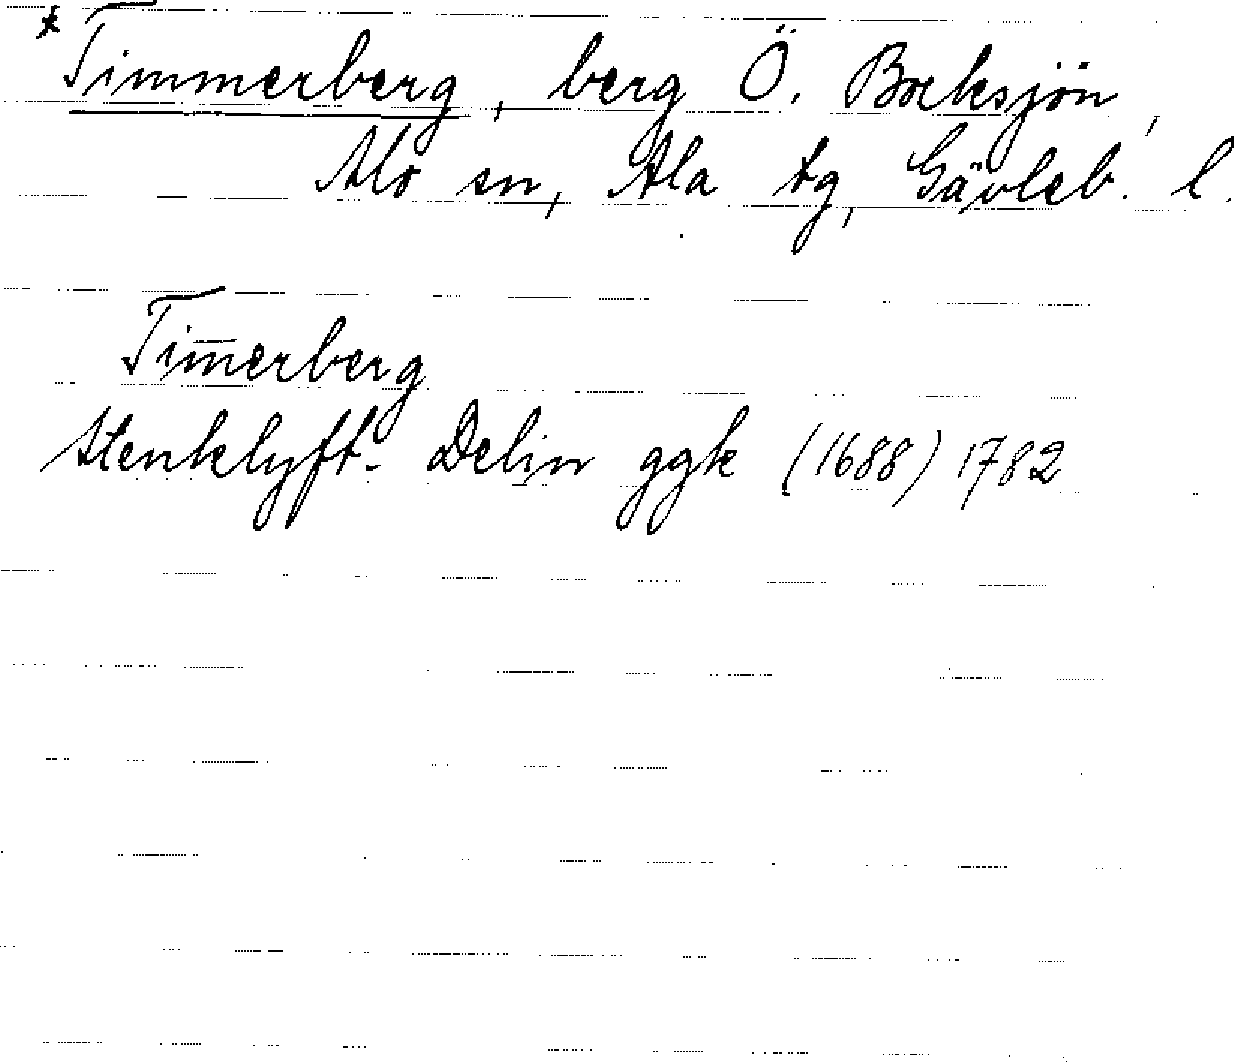 * Timmerberg, berg Ö. Bocksjön,
Mo sn, Ala tg, Gävleb. l.
Tim̅erberg
Stenklyft. Delin ggk (1688) 1782